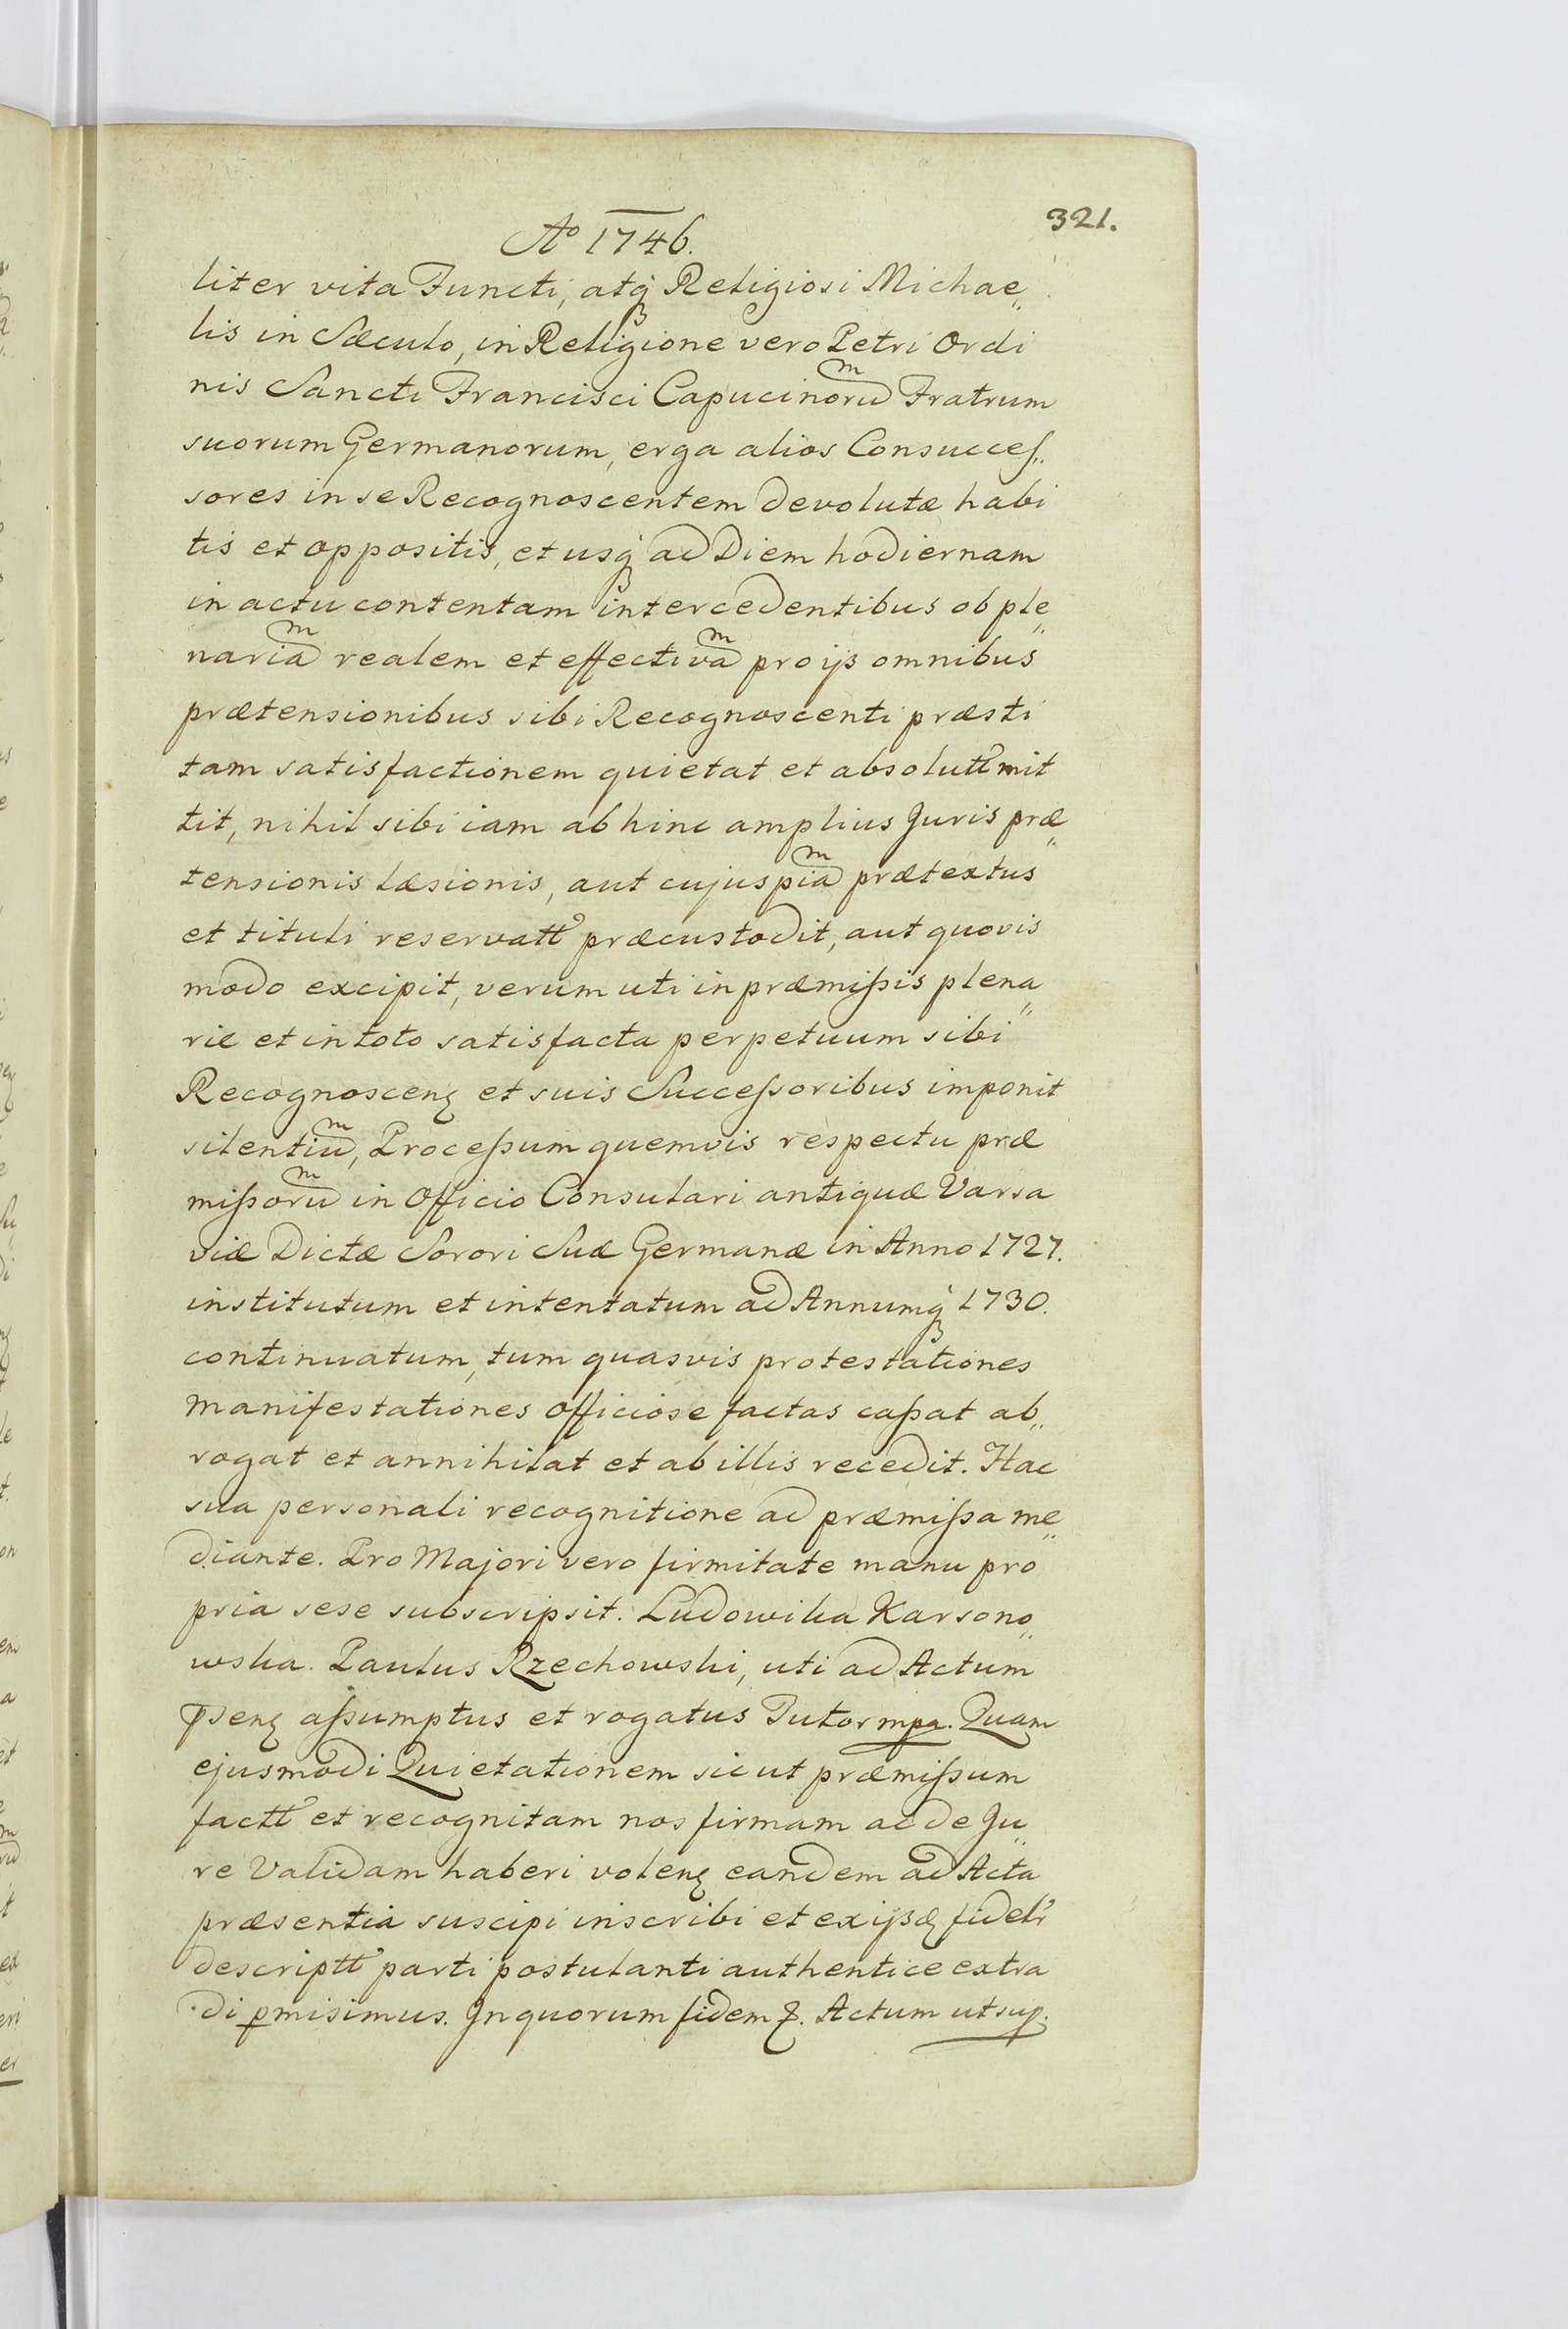 321.
Aō 1746.
liter vita Functi, atq́ Religiosi Michae„
lis in Sæculo, in Religione vero Petri Ordi
nis Sancti Francisci Capucinoruͫ Fratrum
suorum Germanorum, erga alios Consucces„
sores in se Recognoscentem devolutæ habi
tis et oppositis, et usq́ ad Diem hodiernam
in actu contentam intercedentibus ob ple„
nariaͫ realem et effectivaͫ pro ijs omnibus
prætensionibus sibi Recognoscenti præsti
tam satisfactionem quietat et absolutt mit
tit, nihil sibi iam ab hinc amplius Juris præ„
tensionis læsionis, aut cujuspiaͫ prætextus
et tituli reservatt præcustodit, aut quovis
modo excipit, verum uti in præmißis plena„
rie et in toto satisfacta perpetuum sibi
Recognoscenꝫ et suis Succeßoribus imponit
silentiuͫ, Proceßum quemvis respectu præ
mißoruͫ in Officio Consulari antiquæ Varsa
viæ Dictæ Sorori Suæ Germanæ in Anno 1727.
institutum et intentatum ad Annumq́ 1730.
continuatum, tum quasvis protestationes
Manifestationes Officiose factas caßat ab„
rogat et annihilat et ab illis recedit. Hac
sua personali recognitione ad præmißa me„
diante. Pro Majori vero firmitate manu pro
pria sese subscripsit. Ludowika Karsono„
wska. Paulus Rzechowski, uti ad Actum
p̄senꝫ aßumptus et rogatus Tutor mpa. Quam
ejusmodi Quietationem sicut præmißum
factt et recognitam nos firmam ac de Ju„
re Validam haberi volenꝫ eandem ad Acta
præsentia suscipi inscribi et ex ijsdꝫ fidelr
descriptt parti postulanti authentice extra
di pmisimus. In quorum fidem &. Actum ut sup.